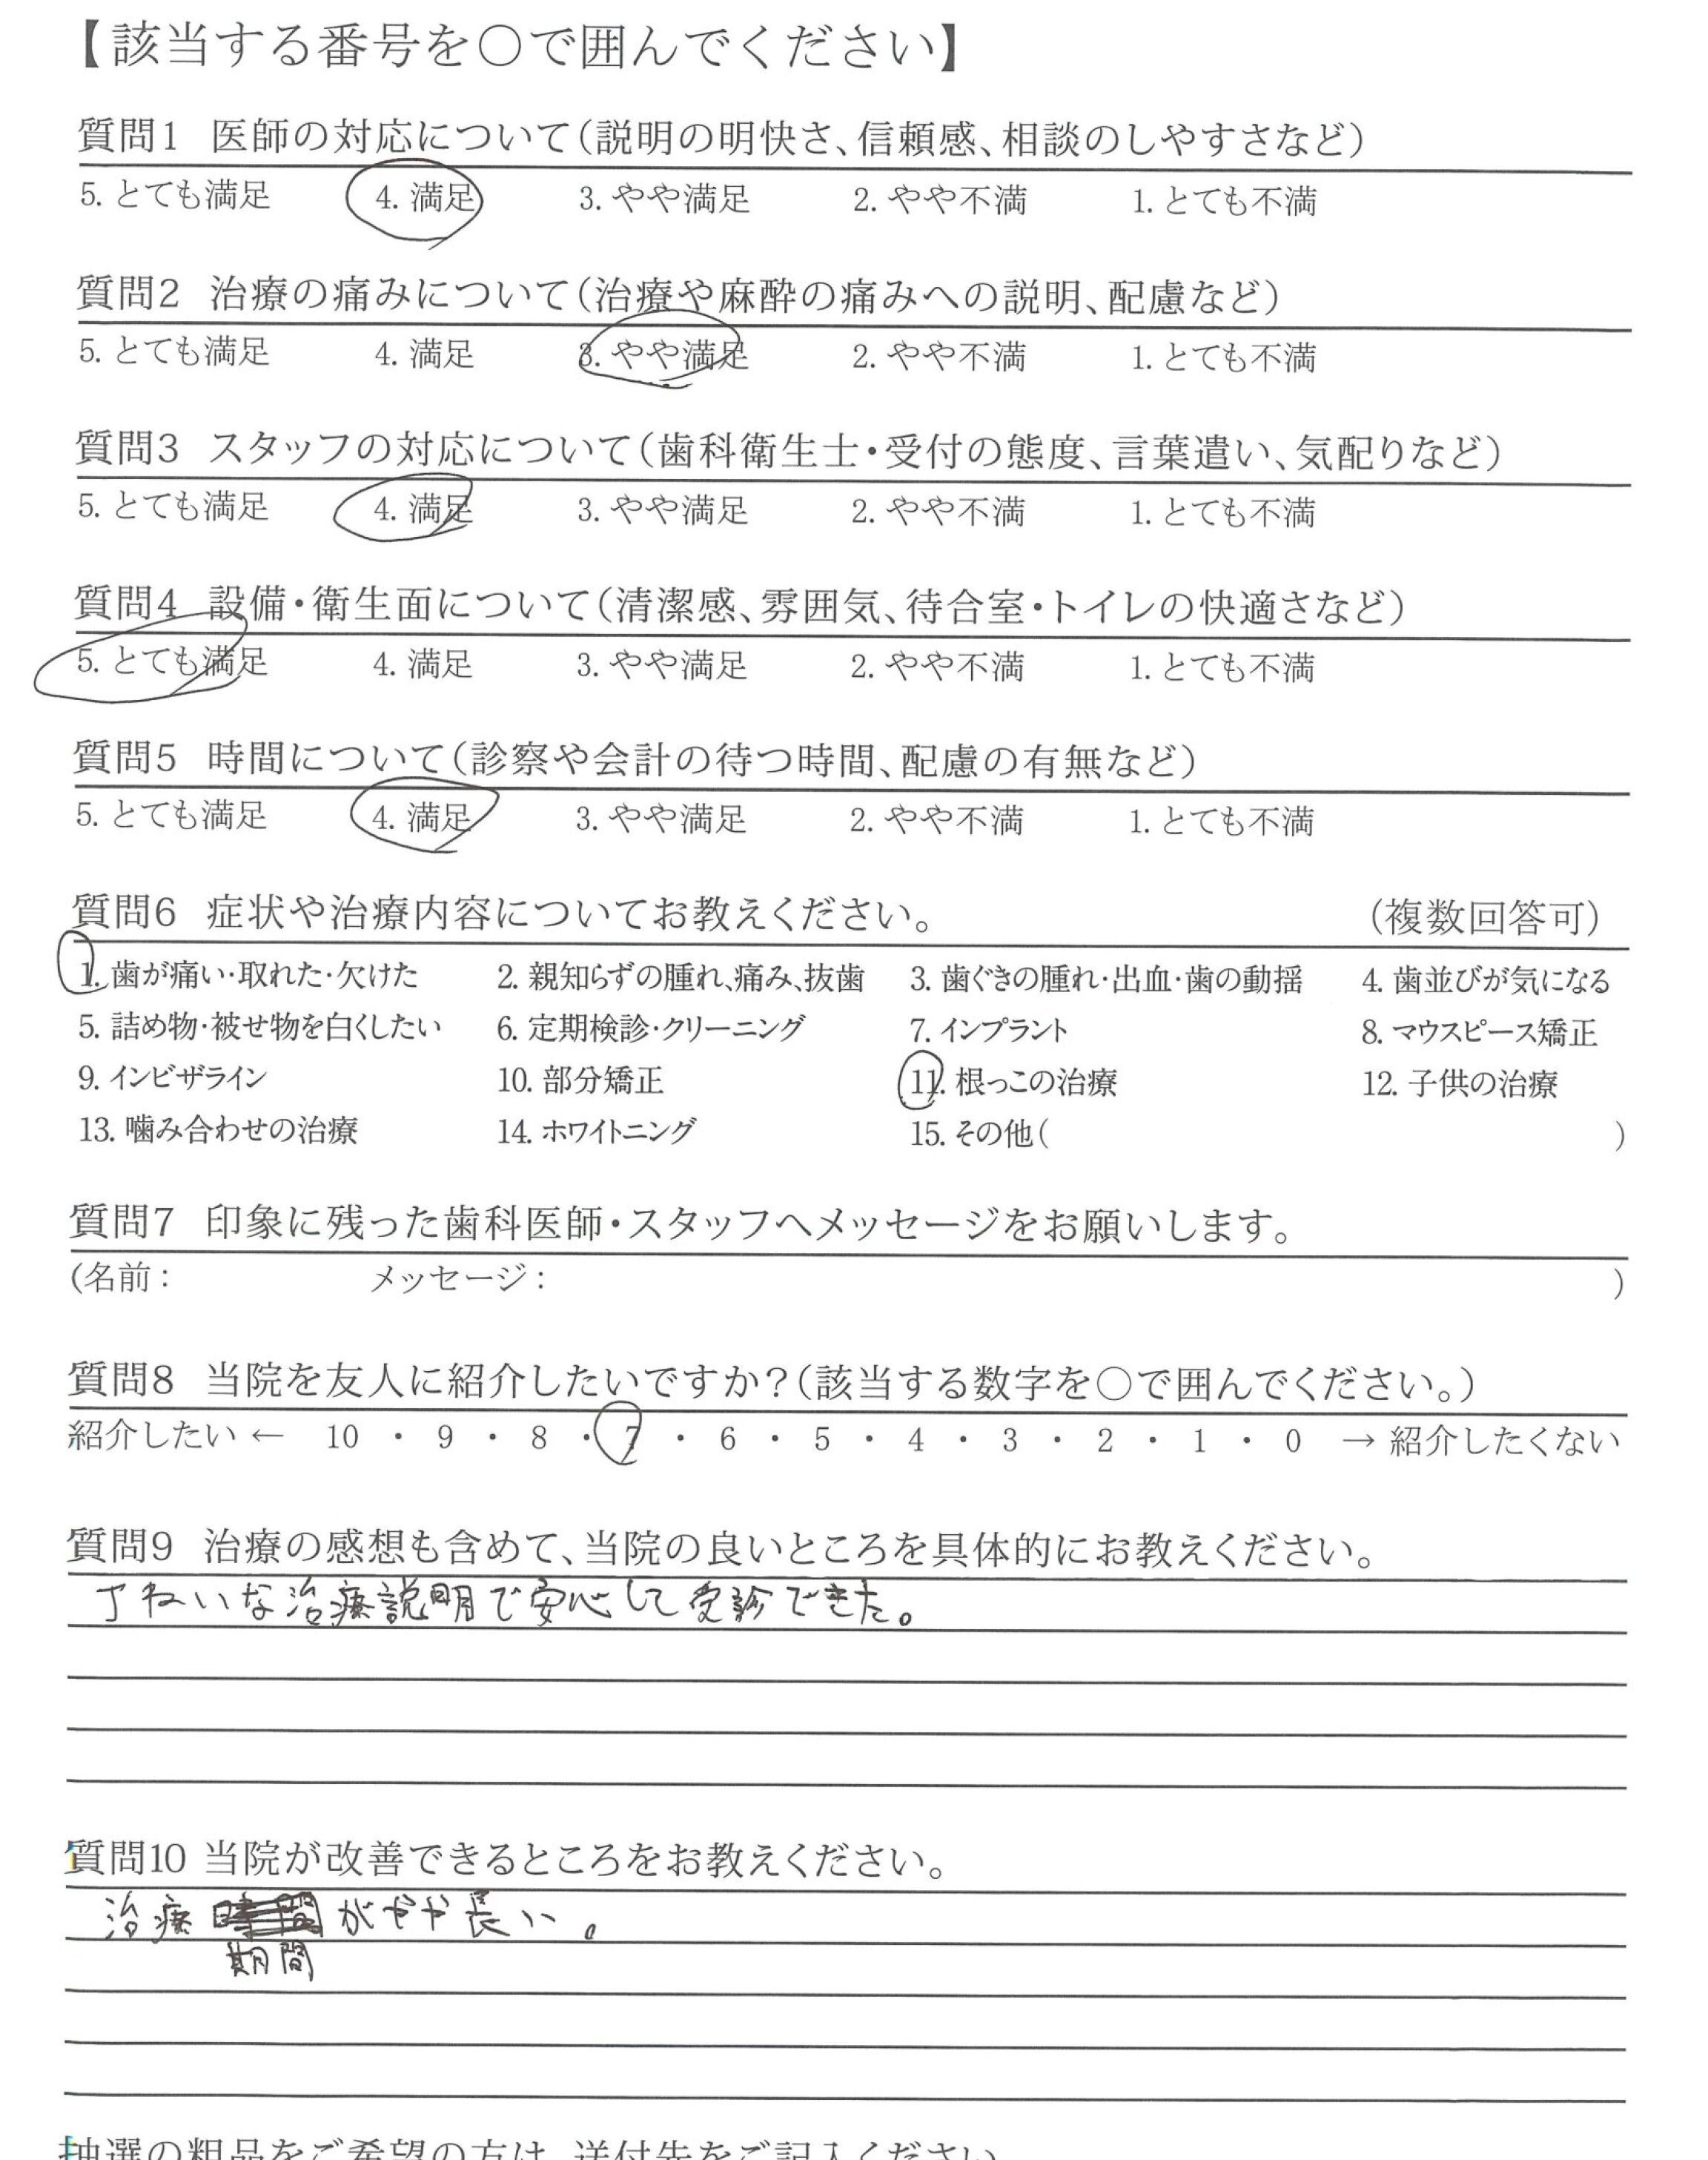 【該当する番号を○で囲んでください】
質問1 医師の対応について(説明の明快さ、信頼感、相談のしやすさなど)
5. とても満足 4. 満足 3. やや満足 2. やや不満 1. とても不満
質問2 治療の痛みについて(治療や麻酔の痛みへの説明、配慮など)
5. とても満足 4. 満足 3. やや満足 2. やや不満 1. とても不満
質問3 スタッフの対応について(歯科衛生士・受付の態度、言葉遣い、気配りなど)
5. とても満足 4. 満足 3. やや満足 2. やや不満 1. とても不満
質問4 設備・衛生面について(清潔感、雰囲気、待合室・トイレの快適さなど)
5. とても満足 4. 満足 3. やや満足 2. やや不満 1. とても不満
質問5 時間について(診察や会計の待つ時間、配慮の有無など)
5. とても満足 4. 満足 3. やや満足 2. やや不満 1. とても不満
質問6 症状や治療内容についてお教えください。 (複数回答可)
1. 歯が痛い・取れた・欠けた 2. 親知らずの腫れ、痛み、抜歯 3. 歯ぐきの腫れ・出血・歯の動揺 4. 歯並びが気になる
5. 詰め物・被せ物を白くしたい 6. 定期検診・クリーニング 7. インプラント 8. マウスピース矯正
9. インビザライン 10. 部分矯正 11. 根っこの治療 12. 子供の治療
13. 噛み合わせの治療 14. ホワイトニング 15. その他( )
質問7 印象に残った歯科医師・スタッフへメッセージをお願いします。
(名前： メッセージ： )
質問8 当院を友人に紹介したいですか？(該当する数字を○で囲んでください。)
紹介したい ← 10 ・ 9 ・ 8 ・ 7 ・ 6 ・ 5 ・ 4 ・ 3 ・ 2 ・ 1 ・ 0 → 紹介したくない
質問9 治療の感想も含めて、当院の良いところを具体的にお教えください。
丁ねいな治療説明で安心して受診できた。
質問10 当院が改善できるところをお教えください。
治療時間がやや長い。
期間
抽選の粗品をご希望の方は、送付先をご記入ください